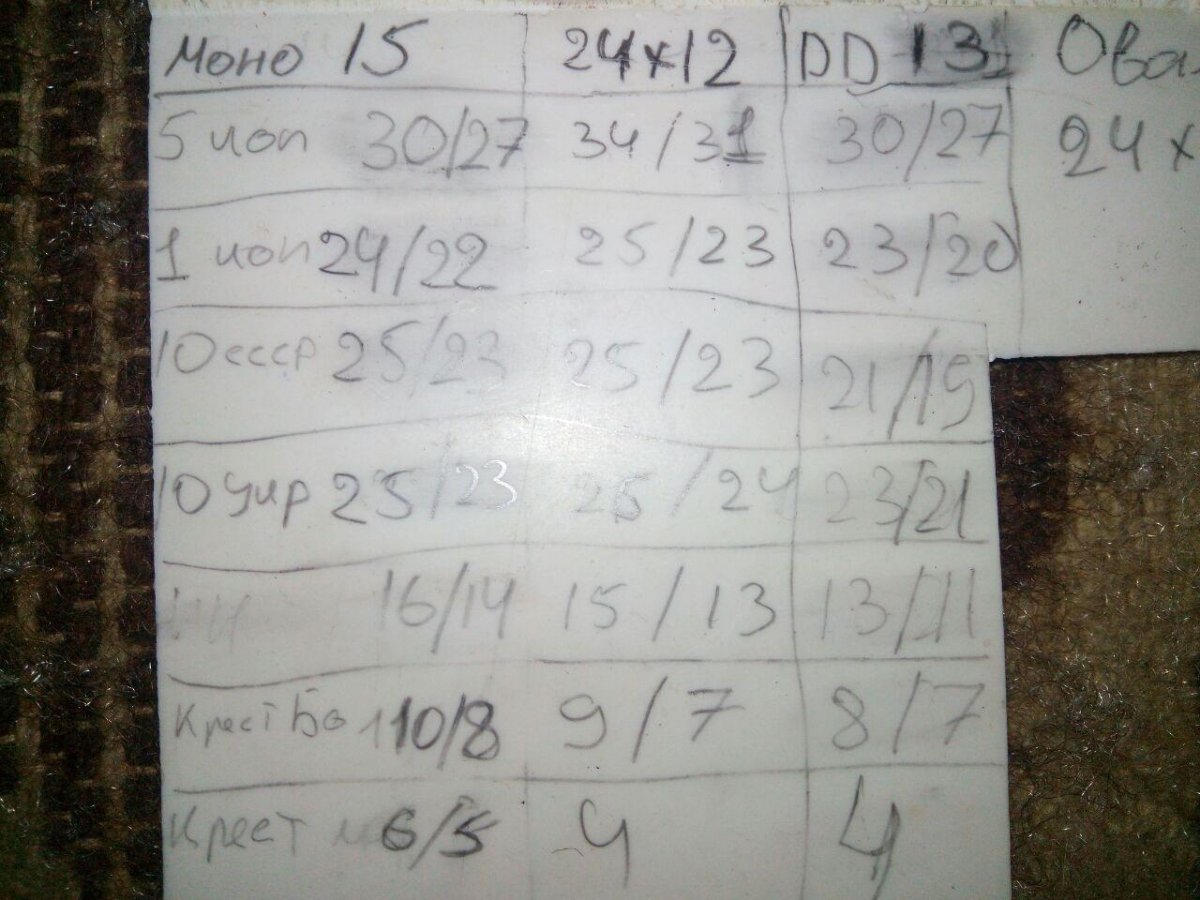 Моно 15 24x12 DD 13 Ова
5 коп 30/27 34/31 30/27 24x
1 коп 24/22 25/23 23/20
10 ссср 25/23 25/23 21/19
10 укр 25/23 26/24 23/21
16/14 15/13 13/11
Крест Бо 10/8 9/7 8/7
Крест 6/5 4 4